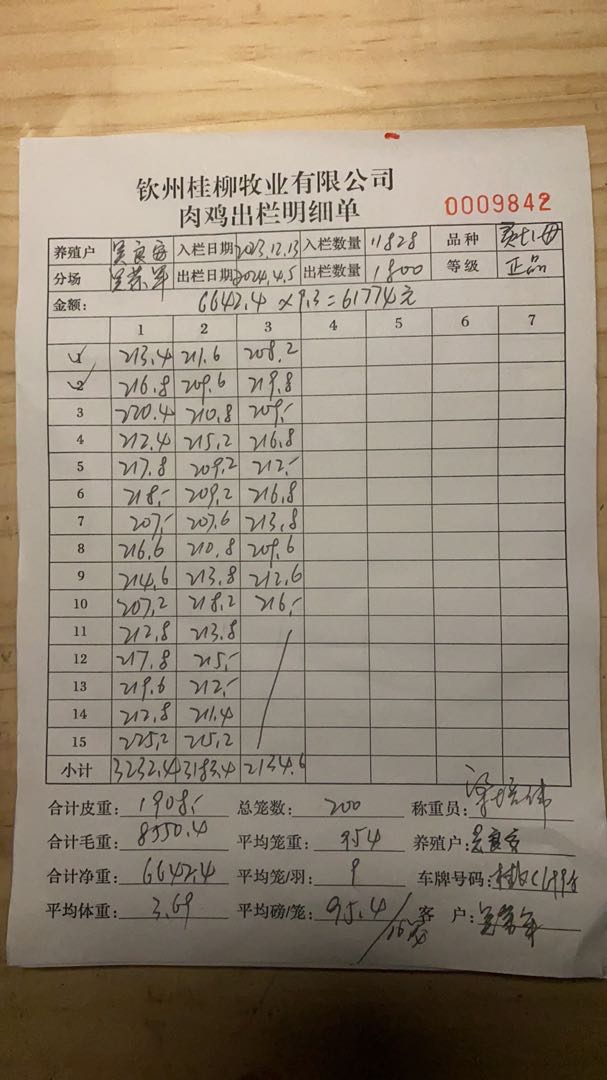 钦州桂柳牧业有限公司
肉鸡出栏明细单
0009842
养殖户 吴良安 入栏日期 2023.12.13 入栏数量 11828 品种
分场 出栏日期 2024.4.5 出栏数量 1800 等级 正品
金额: 6642.4 ×9.3=61774元
1 2 3 4 5 6 7
1 213.4 211.6 208.2
2 216.8 209.6 219.8
3 220.4 210.8 209.-
4 212.4 215.2 216.8
5 217.8 209.2 212.-
6 218.- 209.2 216.8
7 207.- 207.6 213.8
8 216.6 210.8 209.6
9 214.6 213.8 212.6
10 207.2 218.2 216.-
11 212.8 213.8
12 217.8 215.-
13 219.6 212.-
14 212.8 211.4
15 225.2 215.2
小计 3232.4 3183.4 2134.6
合计皮重: 1908.- 总笼数: 200 称重员:
合计毛重: 8550.4 平均笼重: 954 养殖户: 吴良安
合计净重: 6642.4 平均笼/羽: 9 车牌号码:
平均体重: 3.69 平均磅/笼: 95.4 客 户: